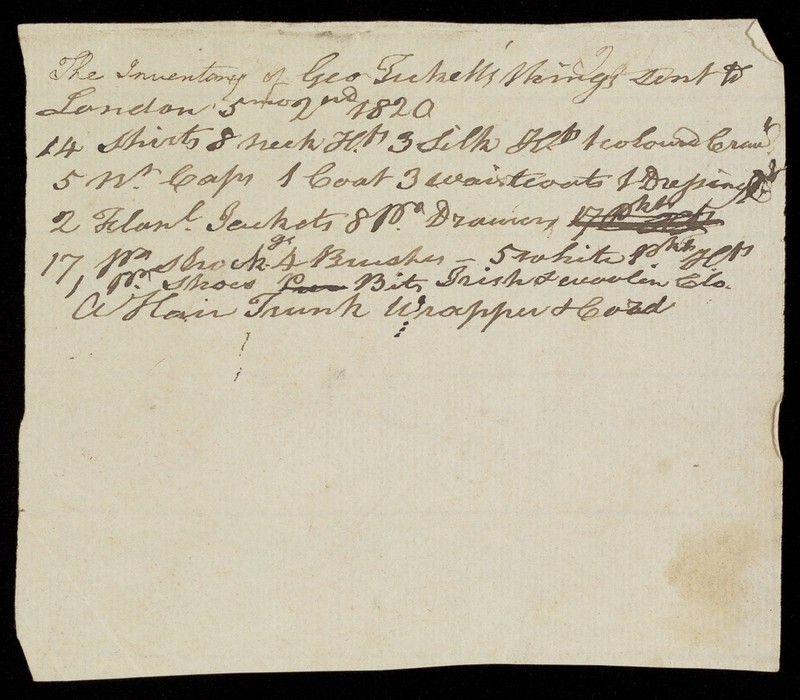 The Inventory of Geo Tuckett's things sent to
London 5mo 2nd 1820
14 Shirts 8 neck Hfs 3 Silk Hfs 1 coloured
5 Nt Caps 1 Coat 3 waistcoats 1 Dressing
2 Flanl Jackets 8 pr Drawers 17
17 pr Stockgs 4 Brushes – 5 white pkt Hfs
1 pr Shoes Bits Irish & woolin Clo.
A Hair Trunk Wrapper & Cord